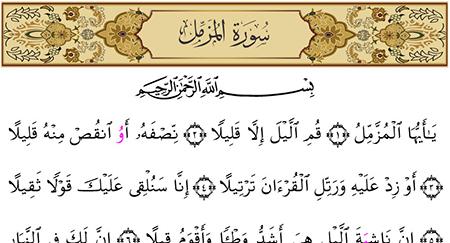 سُورَةُ المُزَّمِّلِ
بِسْمِ ٱللَّهِ ٱلرَّحْمَٰنِ ٱلرَّحِيمِ
يَـٰٓأَيُّهَا ٱلْمُزَّمِّلُ ﴿١﴾ قُمِ ٱلَّيْلَ إِلَّا قَلِيلًا ﴿٢﴾ نِّصْفَهُۥٓ أَوُ ٱنقُصْ مِنْهُ قَلِيلًا
﴿٣﴾ أَوْ زِدْ عَلَيْهِ وَرَتِّلِ ٱلْقُرْءَانَ تَرْتِيلًا ﴿٤﴾ إِنَّا سَنُلْقِى عَلَيْكَ قَوْلًا ثَقِيلًا
﴿٥﴾ إِنَّ نَاشِيَةَ ٱلَّيْلِ هِىَ أَشَدُّ وَطْـًٔا وَأَقْوَمُ قِيلًا ﴿٦﴾ إِنَّ لَكَ فِى ٱلنَّهَارِ